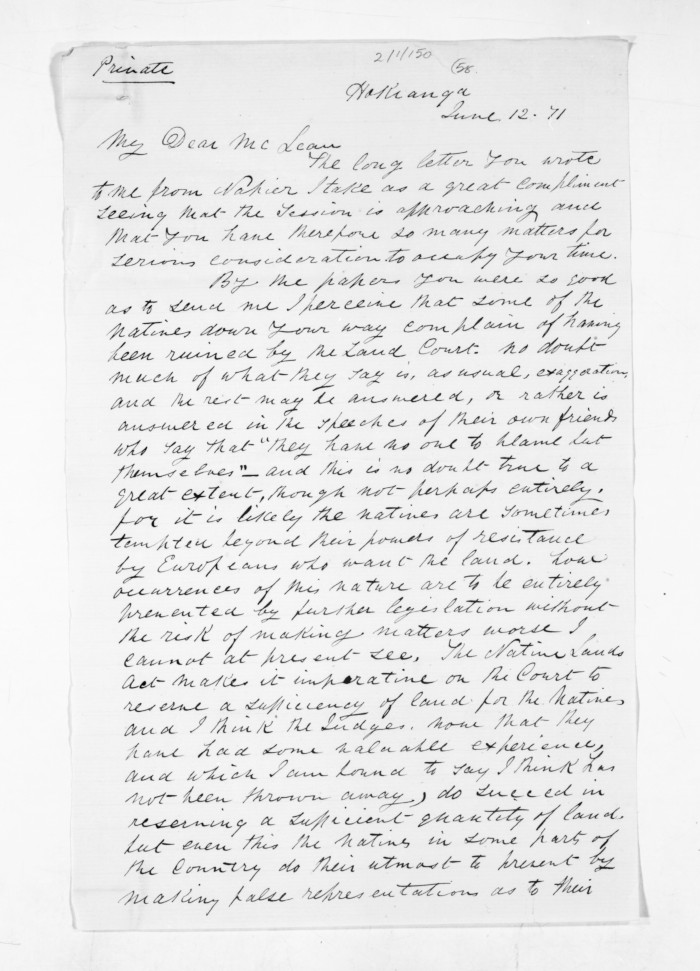 2/1/150 (58.
Private
Hokianga
June 12. 71
My Dear McLean
The long letter You wrote
to me from Napier I take as a great compliment
seeing that the session is approaching and
that You have therefore so many matters for
serious consideration to occupy Your time.
By the papers You were so good
as to send me I perceive that some of the
Natives down Your way complain of having
been ruined by the Land Court. no doubt
much of what they say is, as usual, exaggeration,
and the rest may be answered, or rather is
answered in the speeches of their own friends
who say that "they have no one to blame but
themselves" – and this is no doubt true to a
great extent, though not perhaps entirely.
for it is likely the natives are sometimes
tempted beyond their powers of resistance
by Europeans who want the land. how
occurrences of this nature are to be entirely
prevented by further legislation without
the risk of making matters worse I
cannot at present see. The Native Lands
Act makes it imperative on the Court to
reserve a sufficiency of land for the Natives
and I think the Judges. now that they
have had some valuable experience,
and which I am bound to say I think has
not been thrown away, do succeed in
reserving a sufficient quantity of land.
but even this the Natives in some parts of
the Country do their utmost to prevent by
making false representations as to their